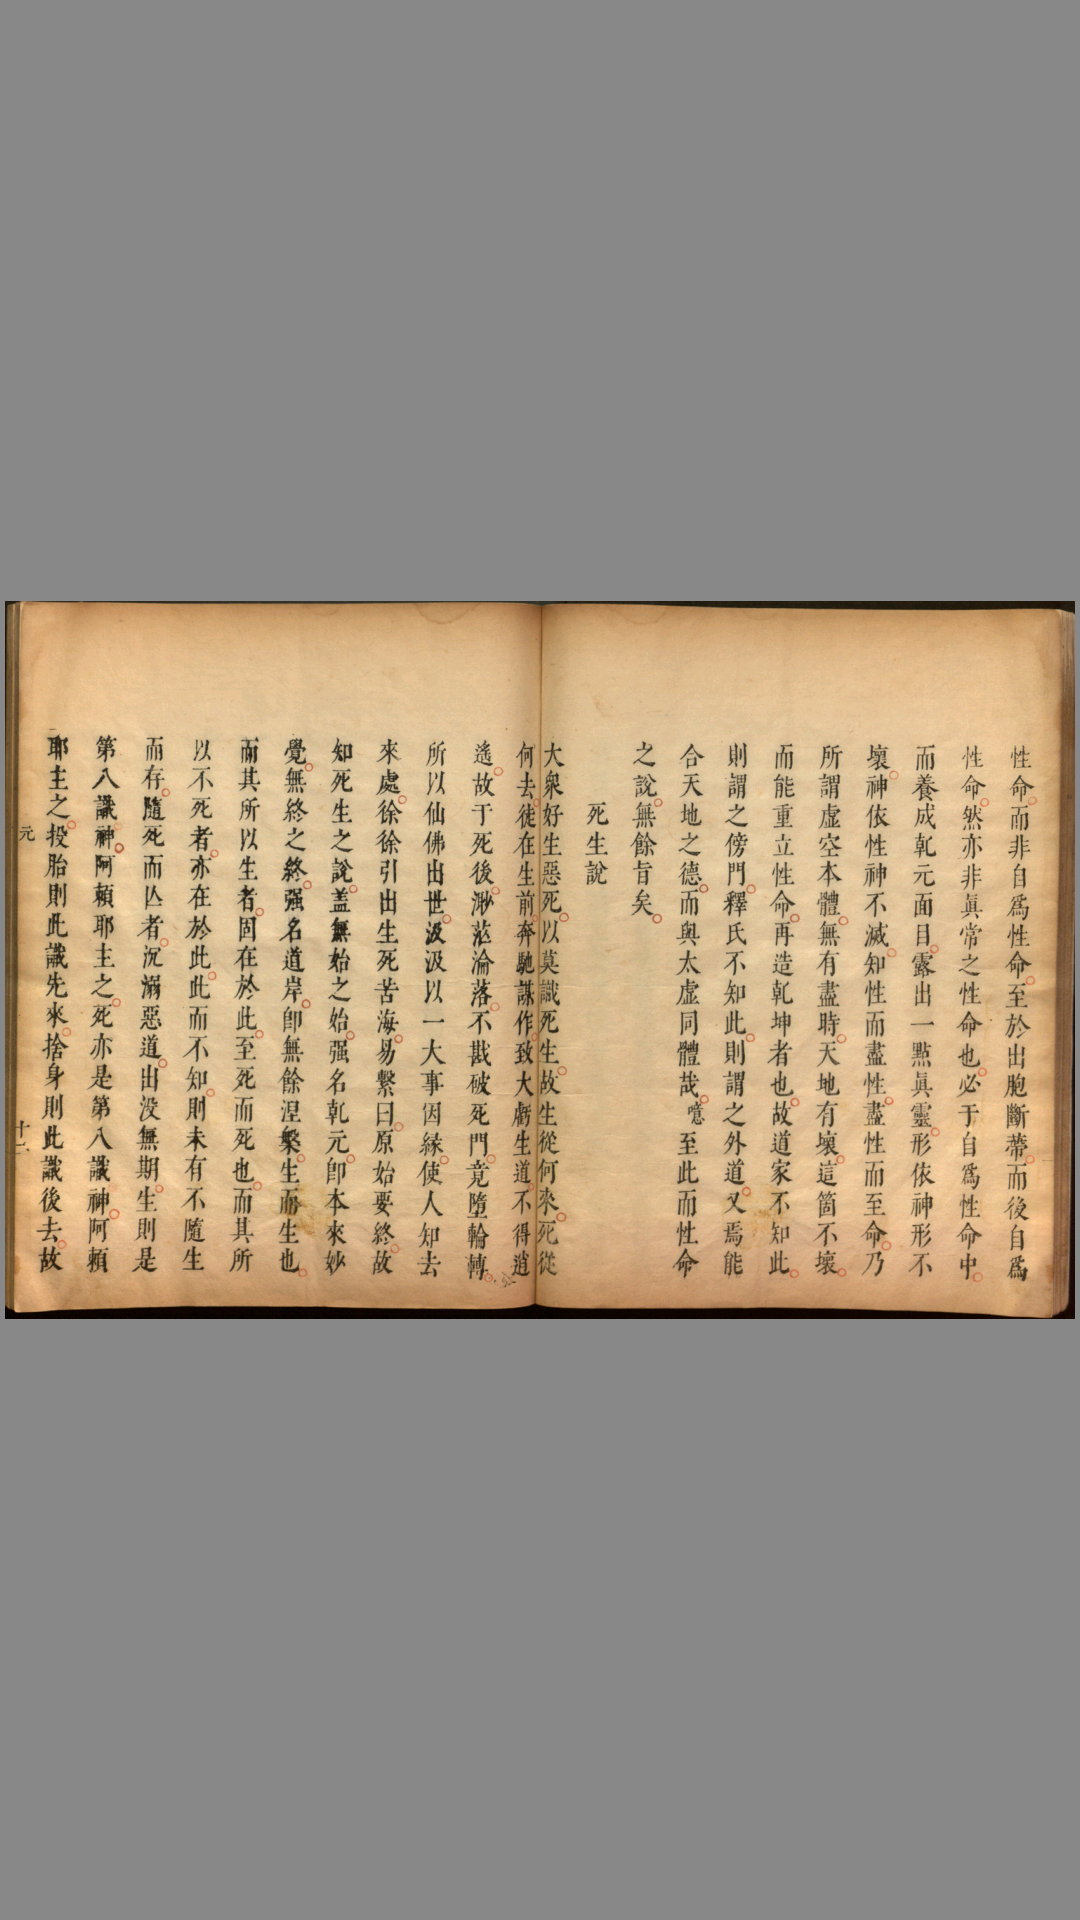 性命而非自爲性命至於出胞斷蒂而後自爲
性命然亦非眞常之性命也必于自爲性命中
而養成乹元面目露出一點眞靈形依神形不
壞神依性神不滅知性而盡性盡性而至命乃
所謂虛空本體無有盡時天地有壞這箇不壞
而能重立性命再造乹坤者也故道家不知此
則謂之傍門釋氏不知此則謂之外道又焉能
合天地之德而與太虛同體哉噫至此而性命
之說無餘旨矣
死生說
大衆好生惡死以莫識死生故生從何來死從
何去徒在生前奔馳謀作致大虧生道不得逍
遙故于死後渺茫淪落不戡破死門竟墮輪轉
所以仙佛出世汲汲以一大事因緣使人知去
來處徐徐引出生死苦海易繫曰原始要終故
知死生之說盖無始之始强名乹元卽本來妙
覺無終之終强名道岸卽無餘涅槃生而生也
而其所以生者固在於此至死而死也而其所
以不死者亦在於此此而不知則未有不隨生
而存隨死而亾者沉溺惡道出没無期生則是
第八識神阿頼耶主之死亦是第八識神阿頼
耶主之投胎則此識先來捨身則此識後去故
元
十一